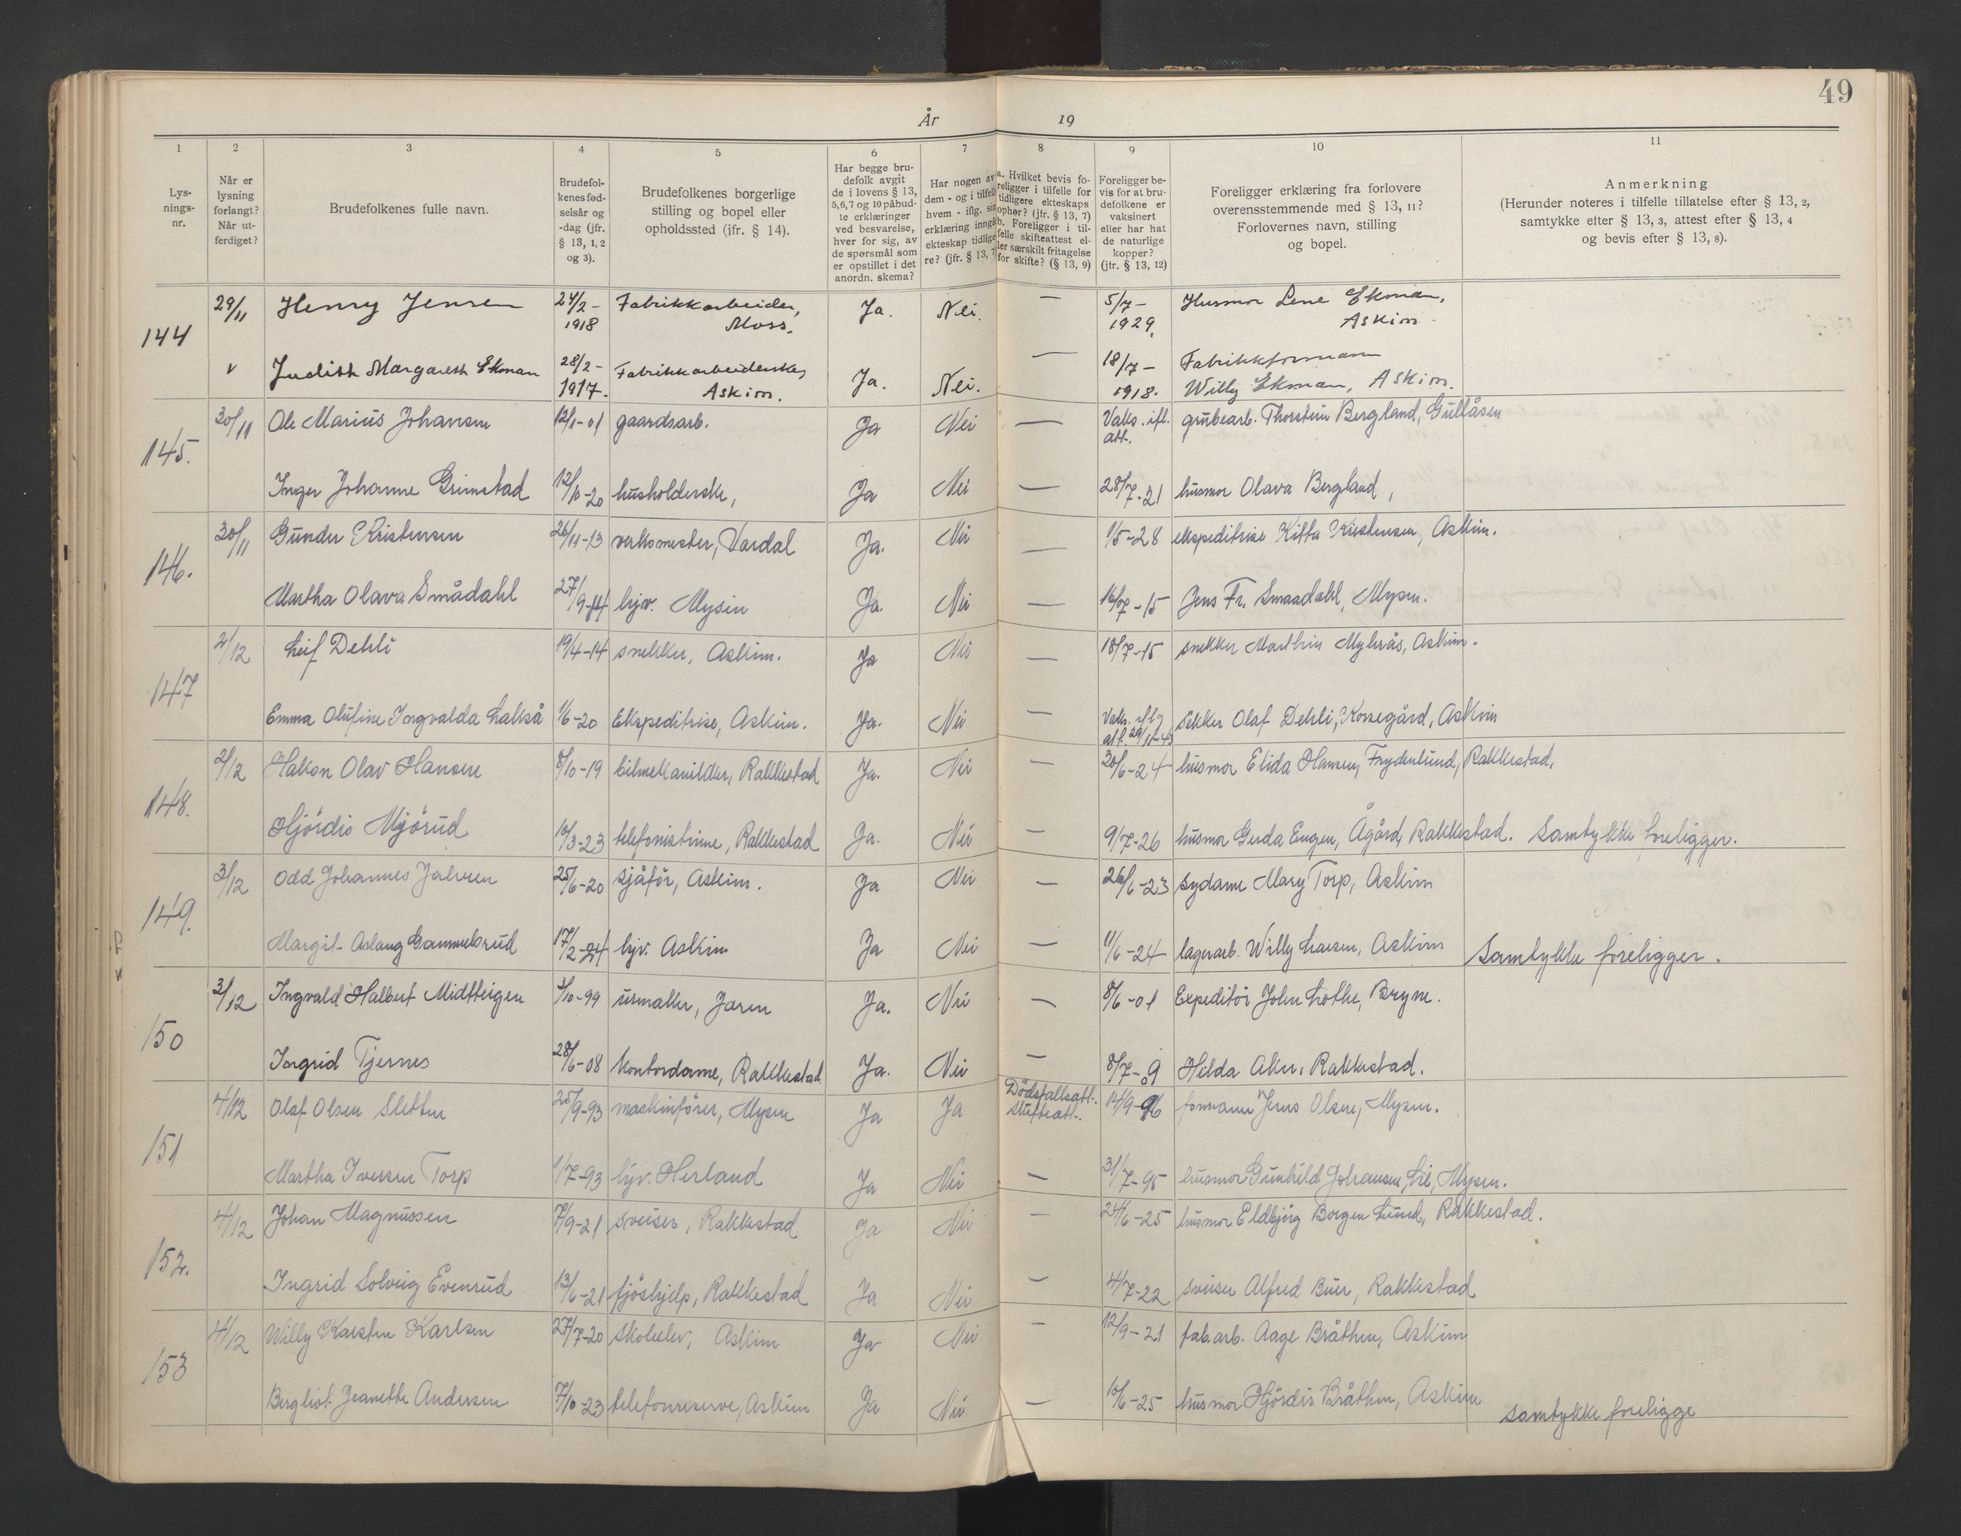 49
År 19
1 2 3 4 5 6 7 8 9 10 11
Lys-
nings-
nr.
Når er
lysning
forlangt?
Når ut-
ferdiget?
Brudefolkenes fulle navn.
Brudefol-
kenes fød-
selsår og
-dag (jfr.
§ 13, 1, 2
og 3).
Brudefolkenes borgerlige
stilling og bopel eller
opholdssted (ifr. § 14).
Har begge bru-
defolk avgit
de i lovens § 13,
5, 6, 7 og 10 påbud-
te erklæringer
ved besvarelse,
hver for sig, av
de spørsmål som
er opstillet i det
anordn. skema?
Har nogen av
dem - og i tilfelle
hvem - iflg. sin
erklæring inngått
ekteskap tidlige-
re? (jfr. § 13, 7
a. Hvilket bevis fo-
religger i tilfelle for
tidligere ekteskaps
ophør? (jfr. § 13, 7)
b. Foreligger i til-
felle skifteattest el-
ler særskilt fritagelse
for skifte? (§ 13, 9)
Foreligger be-
vis for at bru-
defolkene er
vaksinert
eller har hat
de naturlige
kopper?
(jfr. § 13, 12)
Foreligger erklæring fra forlovere
overensstemmende med § 13, 11?
Forlovernes navn, stilling
og bopel.
Anmerkning
(Herunder noteres i tilfelle tillatelse efter § 13, 2,
samtykke efter § 13, 3, attest efter § 13, 4
og bevis efter § 13, 8).
144 29/11 Henry Jensen 24/2-1918 Fabrikkarbeider, Moss. Ja. Nei. — 5/7-1929. Husmor Lene Ekman, Askim.
Judith Margareth Ekman 28/2-1917. Fabrikkarbeiderske, Askim. Ja. Nei. — 18/7-1918. Fabrikkformann Willy Ekman, Askim.
145. 30/11 Ole Marius Johansen 12/1-01 gaardsarb. Ja Nei — Vaks. ifl. att. grubearb. Thorstein Bergland, Gullåsen
Inger Johanne Grimstad 12/10-20 husholderske, Ja Nei — 28/7-21 husmor Olava Bergland,
146. 30/11 Gunder Kristensen 26/11-13 verksmester, Vardal Ja. Nei — 1/5-28 ekspeditrise Kitta Kristensen, Askim.
Martha Olava Smådahl 27/9-14 hjv. Mysen Ja. Nei — 16/7-15 Jens Fr. Smaadahl, Mysen.
147 2/12 Leif Dehli 19/4-14 snekker, Askim. Ja Nei — 18/7-15 snekker Marthin Mylerås, Askim.
Emma Olufine Ingvalda Lakså 1/6-20 Ekspeditrise, Askim. Ja. Nei — Vaks. iflg att. 29/11-43 sekker Olaf Dehli, Korsegård, Askim
148. 2/12 Håkon Olav Hansen 8/10-19 bilmekanikker, Rakkestad Ja. Nei — 30/6-24 husmor Elida Hansen, Frydenlund, Rakkestad.
Hjördis Mjörud 10/3-23 telefonistinne, Rakkestad Ja. Nei — 9/7-26 husmor Gerda Engen, Ågård, Rakkestad. Samtykke foreligger.
149. 3/12 Odd Johannes Jahren 25/6-20 sjåför, Askim. Ja Nei — 26/6-23 sydame Mary Torp, Askim
Margit Aslaug Gammelsrud 17/2-24 hjv. Askim Ja Nei — 11/6-24 lagerarb. Willy Larsen, Askim Samtykke foreligger.
150 3/12 Ingvald Halbert Midtteigen 3/10-99 urmaker, Jaren Ja. Nei — 8/6-01 Expeditör John Lothe, Bryne.
Ingrid Tjernes 28/6-08 kontordame, Rakkestad Ja. Nei — 8/7-09 Hilda Aker, Rakkestad.
151 4/12 Olaf Olsen Sletten 25/9-93 maskinfører, Mysen Ja Ja Dödsfallsatt. skifteatt. 14/9-96 formann Jens Olsen, Mysen.
Martha Iversen Torp 1/7-93 hjv. Herland Ja Nei — 31/7-95 husmor Gunhild Johansen, Lie, Mysen.
152. 4/12 Johan Magnussen 7/9-21 sveiser, Rakkestad Ja Nei 24/6-25 husmor Eldbjörg Borgen Lund, Rakkestad.
Ingrid Solveig Evenrud 13/6-21 fjöshjelp, Rakkestad Ja Nei — 4/7-22 sveiser Alfred Buer, Rakkestad
153 4/12 Willy Karsten Karlsen 27/7-20 skoleelev, Askim Ja Nei — 12/9-21 fab.arb. Aage Bråthen, Askim
Bergliot Jeanette Andersen 7/10-23 telefonreserve, Askim Ja Nei — 10/6-25 husmor Hjördis Bråthen, Askim samtykke foreligge